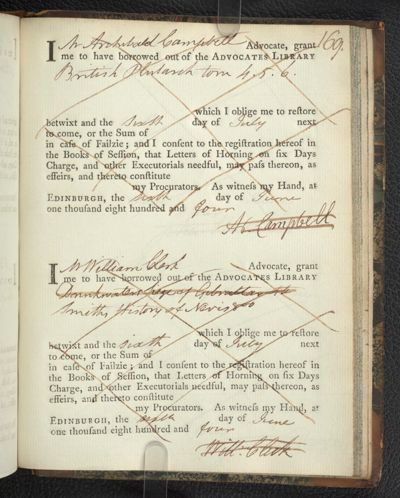 169.
I Mr Archibald Campbell Advocate, grant
me to have borrowed out of the ADVOCATES LIBRARY
British Plutarch tom 4. 5. 6.
which I oblige me to reſtore
betwixt and the sixth day of July next
to come, or the Sum of
in caſe of Failzie; and I conſent to the regiſtration hereof in
the Books of Seſſion, that Letters of Horning on ſix Days
Charge, and other Executorials needful, may paſs thereon, as
effeirs, and thereto conſtitute
my Procurators. As witneſs my Hand, at
EDINBURGH, the sixth day of June
one thouſand eight hundred and four
Ar. Campbell
I Mr William Clerk Advocate, grant
me to have borrowed out of the ADVOCATES LIBRARY
Drinkwater's siege of Gibraltar
Smiths History of Nevis 8vo
which I oblige me to reſtore
betwixt and the sixth day of July next
to come, or the Sum of
in caſe of Failzie; and I conſent to the regiſtration hereof in
the Books of Seſſion, that Letters of Horning on ſix Days
Charge, and other Executorials needful, may paſs thereon, as
effeirs, and thereto conſtitute
my Procurators. As witneſs my Hand, at
EDINBURGH, the sixth day of June
one thouſand eight hundred and four
Will. Clerk